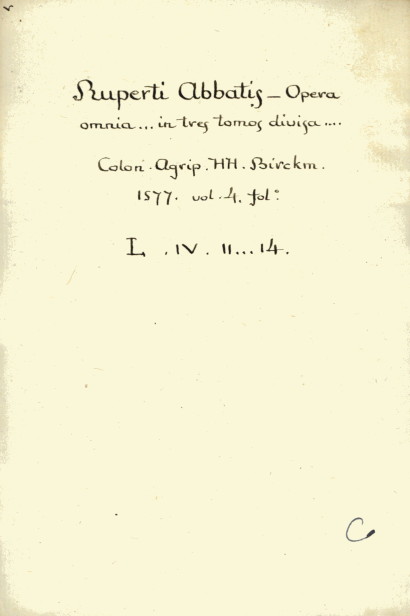 Ruperti Abbatis – Opera
omnia... in tres tomos divisa....
Colon. Agrip. HH. Birckm.
1577. vol. 4. folº.
L . IV . 11...14.